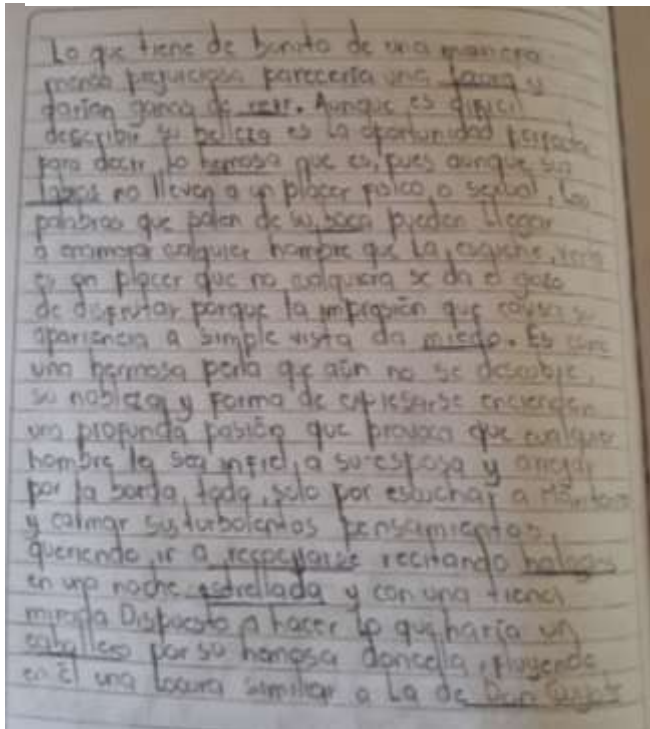 Lo que tiene de bonito de una manera
menos prejuiciosa parecería una locura y
darían ganas de reir. Aunque es dificil
describir su belleza es la oportunidad perfecta
para decir lo hermosa que es, pues aunque sus
labios no lleven a un placer fisico o sexual, las
palabras que salen de su boca pueden llegar
a enamorar cualquier hombre que la escuche, verla
es un placer que no cualquiera se da el gozo
de disfrutar porque la impresión que causa su
apariencia a simple vista da miedo. Es como
una hermosa perla que aún no se descubre,
su nobleza y forma de expresarse encienden
una profunda pasión que provoca que cualquier
hombre le sea infiel a su esposa y arrojar
por la borda todo, solo por escuchar a
y calmar sus turbolentos pensamientos,
queriendo ir a recitando halagos
en una noche estrellada y con una
mirada Dispuesto a hacer lo que haría un
caballero por su hermosa doncella, fluyendo
en El una locura similiar a la de Don Quijote